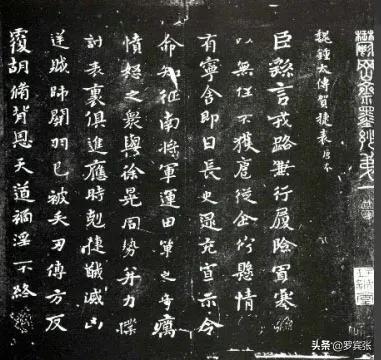 鬱岡齋墨妙
魏鍾太傅賀捷表 唐本
臣繇言戎路兼行履險冒寒
以無任不獲扈從企佇懸情
有寧舍即日長史逯充宣示令
命知征南將軍運田單之奇厲
憤怒之眾與徐晃同勢并力撲
討表裏俱進應時剋捷馘滅凶
逆賊帥關羽已被矢刃傅方反
覆胡脩背恩天道禍淫不終
头条 @罗宾张